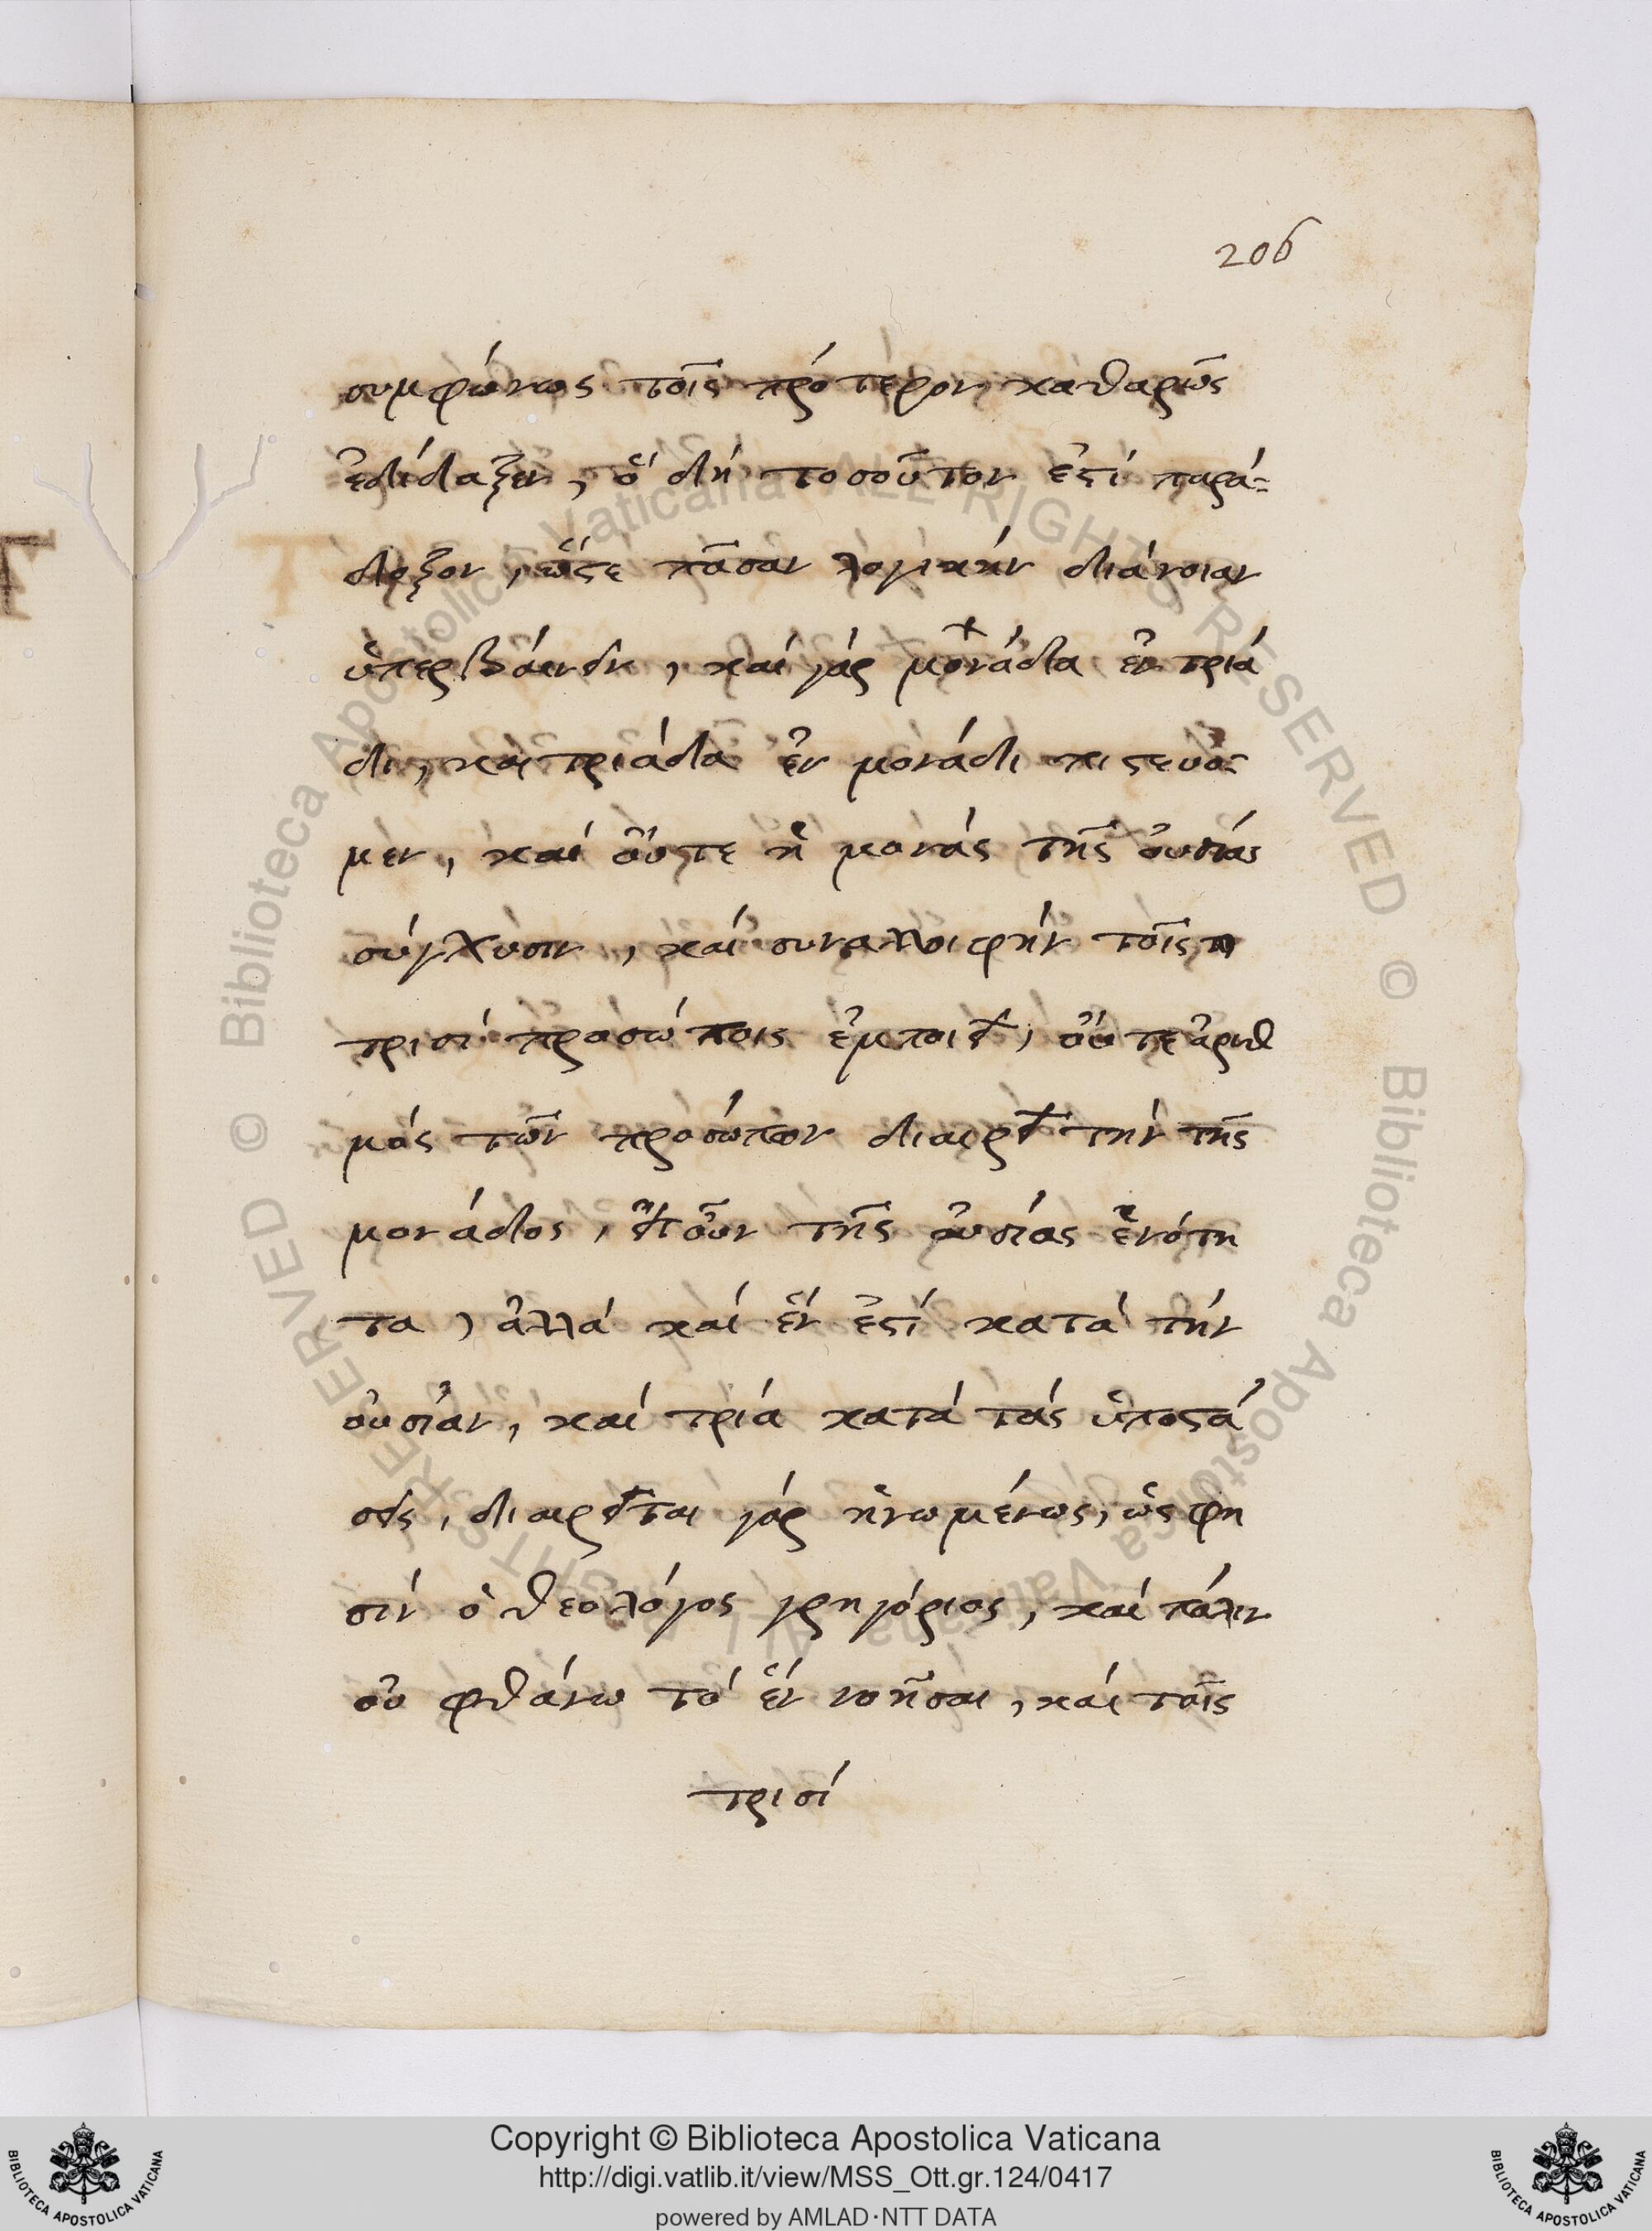 206
συμφώνως τοῖς πρότερον καθαρῶς
ἐδίδαξεν, ὃ δή τοσοῦτον ἐστί παρά=
δοξον, ὥστε πᾶσαν λογικήν διάνοιαν
ὑπερβαίνειν, καί γάρ μονάδα ἐν τριά
δι, και τριάδα ἐν μονάδι πιστευο=
μεν, καί οὔτε ἡ μονάς τῆς οὐσίας
σύγχυσιν, καί συναλλοιφήν τοῖς
τρισί προσώποις ἐμποιεῖ, οὔτε ἀριθ
μός τῶν προσώπον διαιρεῖ τήν τῆς
μονάδος, εἴτ οὖν τῆς οὐσίας ἑνότη
τα, ἀλλά καί ἕν ἐστί κατά τήν
οὐσίαν, καί τρία κατά τάς ὑποστά
σεις, διαιρεῖται γάρ ἡνωμένως, ὡς φη
σίν ὁ θεολόγος γρηγόριος, καί πάλιν
οὐ φθάνω τό ἕν νοῆσαι, καί τοῖς
τρισί
Biblioteca Apostolica Vaticana ALL RIGHTS RESERVED ©
Biblioteca Apostolica Vaticana ALL RIGHTS RESERVED ©
Copyright © Biblioteca Apostolica Vaticana
http://digi.vatlib.it/view/MSS_Ott.gr.124/0417
powered by AMLAD·NTT DATA
BIBLIOTECA APOSTOLICA VATICANA
BIBLIOTECA APOSTOLICA VATICANA